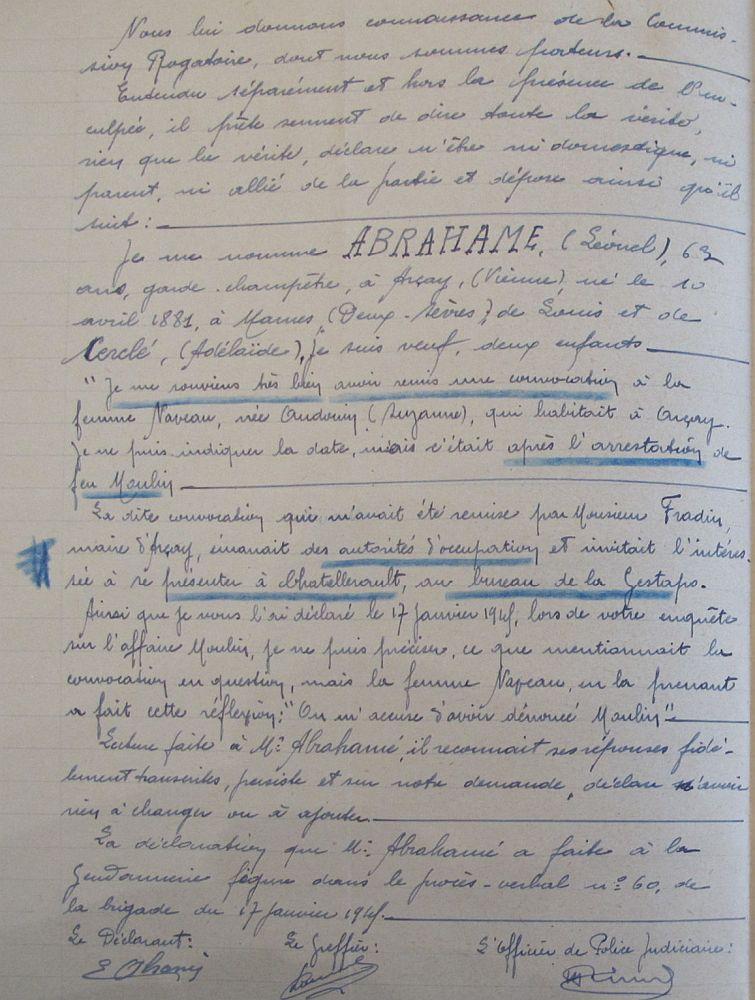 Nous lui donnons connaissance de la Commis-
sion Rogatoire, dont nous sommes porteurs.
Entendu séparément et hors la présence de l'in-
culpée, il prête serment de dire toute la vérité,
rien que la vérité, déclare n'être ni domestique, ni
parent, ni allié de la partie et dépose ainsi qu'il
suit :
Je me nomme ABRAHAME, (Léonel), 63
ans, garde-champêtre, à Arçay, (Vienne) né le 10
avril 1881, à Marnes, (Deux-Sèvres), de Louis et de
Cerclé, (Adélaïde), je suis veuf, deux enfants
"Je me souviens très bien avoir remis une convocation à la
femme Naveau, née Audouin (Suzanne), qui habitait à Arçay.
Je ne puis indiquer la date, mais c'était après l'arrestation de
feu Moulin
La dite convocation qui m'avait été remise par Monsieur Fradin,
maire d'Arçay, émanait des autorités d'occupation et invitait l'intéres-
sée à se présenter à Chatellerault, au bureau de la Gestapo.
Ainsi que je vous l'ai déclaré le 17 janvier 1945, lors de votre enquête
sur l'affaire Moulin, je ne puis préciser, ce que mentionnait la
convocation en question, mais la femme Naveau, en la prenant
a fait cette réflexion: "On m'accuse d'avoir dénoncé Moulin"
Lecture faite à Mr Abrahamé, il reconnait ses réponses fidè-
lement transcrites, persiste et sur notre demande, déclare n'avoir
rien à changer ou à ajouter.
La déclaration que Mr Abrahamé a faite à la
Gendarmerie figure dans le procès-verbal n° 60, de
la brigade du 17 janvier 1945.
Le Déclarant: Le Greffier: L'Officier de Police Judiciaire: